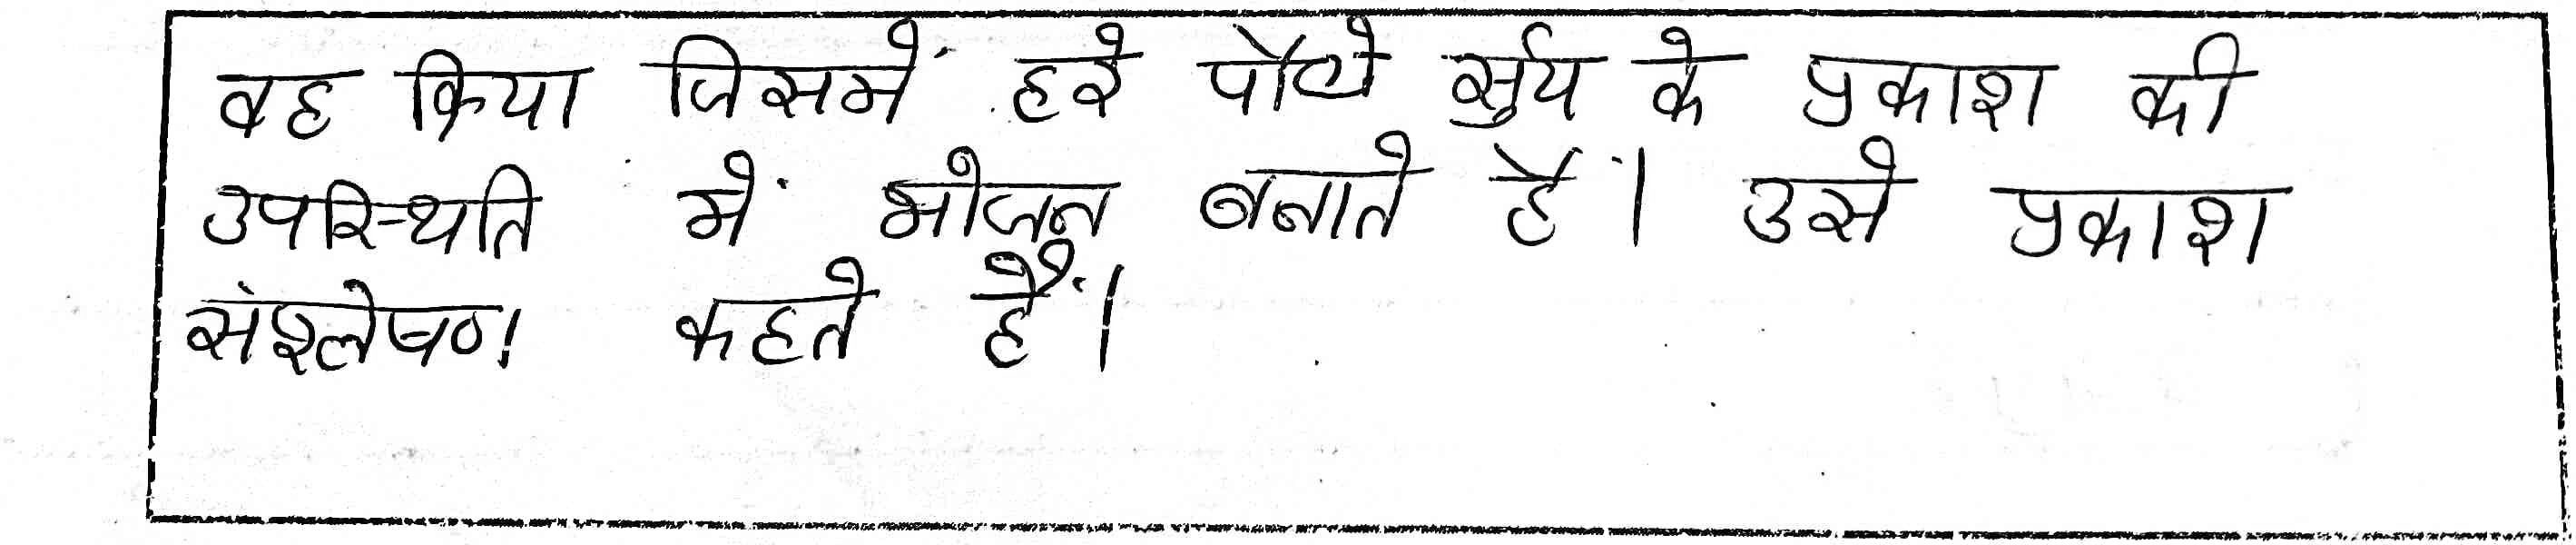 वह क्रिया जिसमें हरे पौधे सुर्य के प्रकाश की
उपस्थिति में भोजन बनाते हैं। उसे प्रकाश
संश्लेषण कहते हैं।